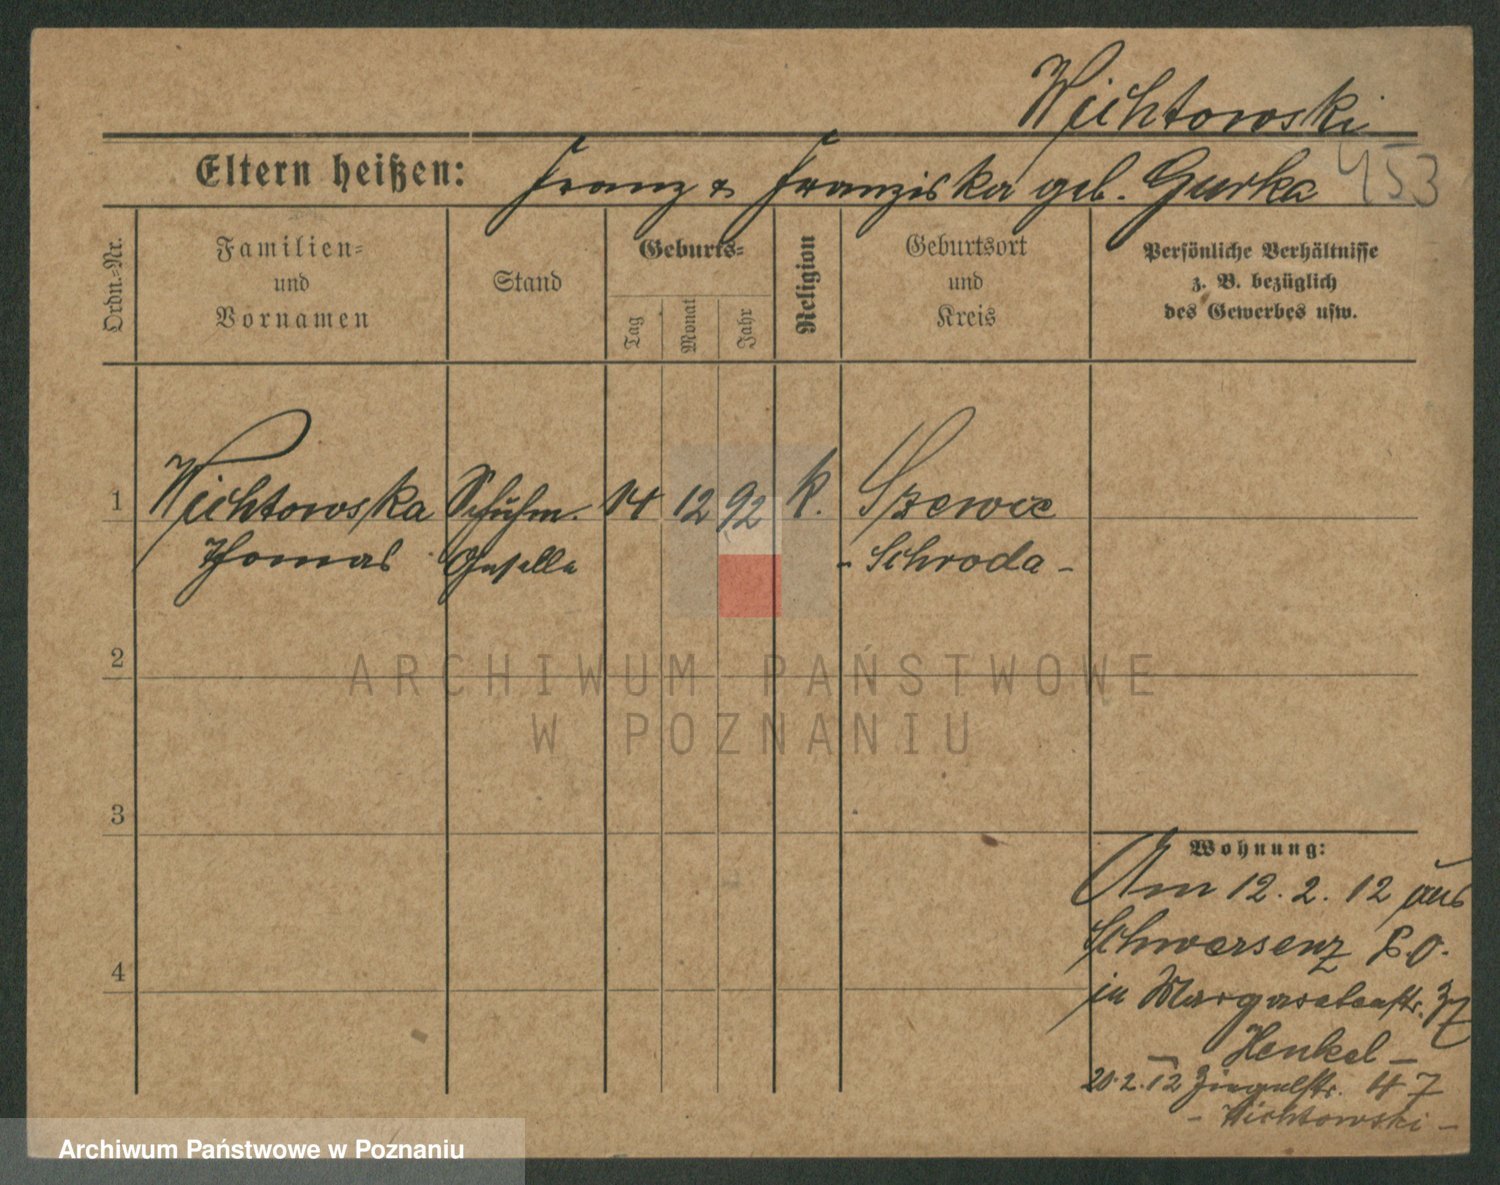 Wichtowski
Eltern heißen: Franz & Franziska geb. Gurka 453
Ordn.-Nr.
Familien-
und
Vornamen
Stand
Geburts-
Tag
Monat
Jahr
Religion
Geburtsort
und
Kreis
Persönliche Verhältnisse
z. B. bezüglich
des Gewerbes usw.
1 Wichtowska Schuhm. 14 12 92 k.
Thomas Geselle - Schroda -
2
ARCHIWUM PAŃSTWOWE
W POZNANIU
3
Wohnung:
Am 12. 2. 12 aus
Schwersenz P.O.
4
in Margaretenstr.
Henkel -
20.2.12 Ziegelstr. 47
- Wichtowski -
Archiwum Państwowe w Poznaniu